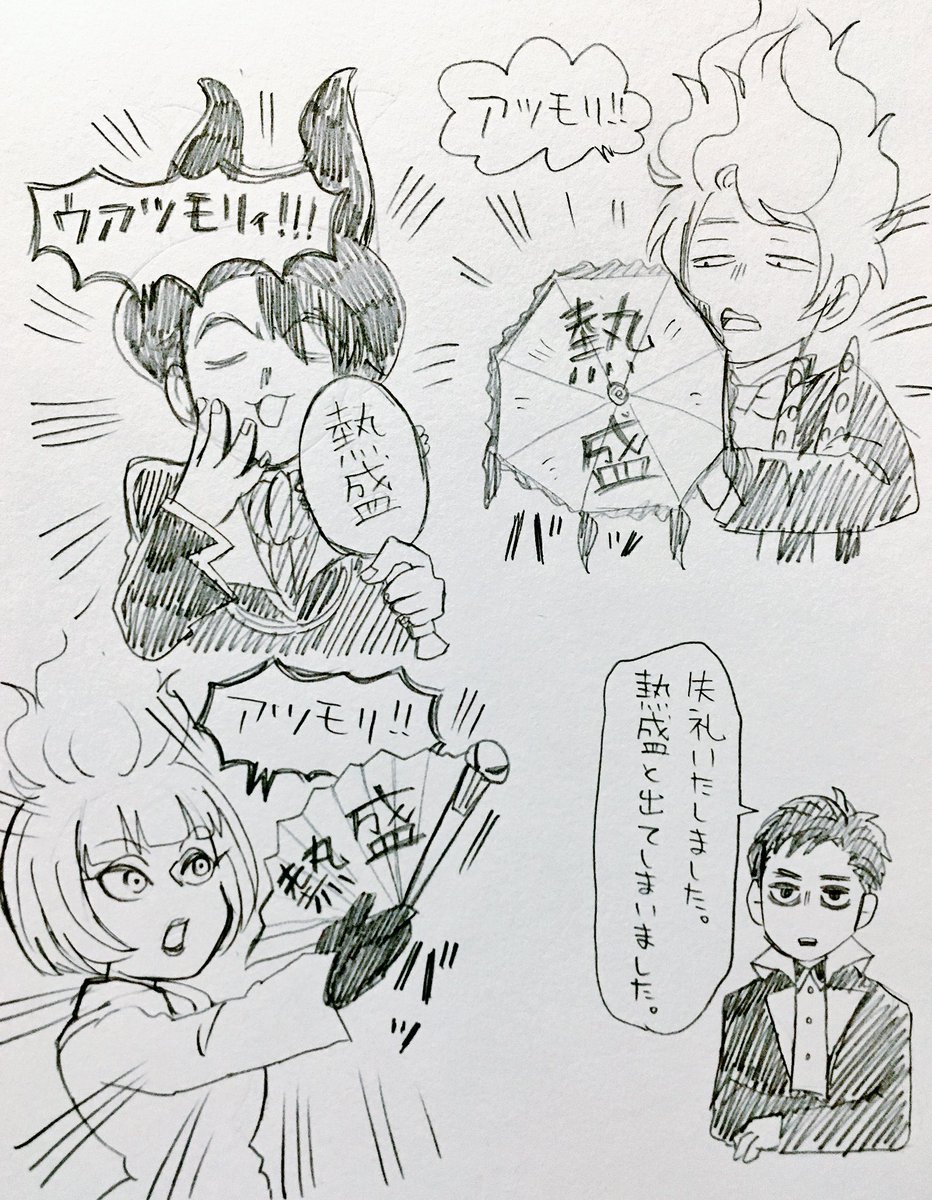 アツモリ!!
熱
盛
バッ
ウアツモリィ!!!
熱盛
アツモリ!!
熱盛
バッ
失礼いたしました。
熱盛と出てしまいました。